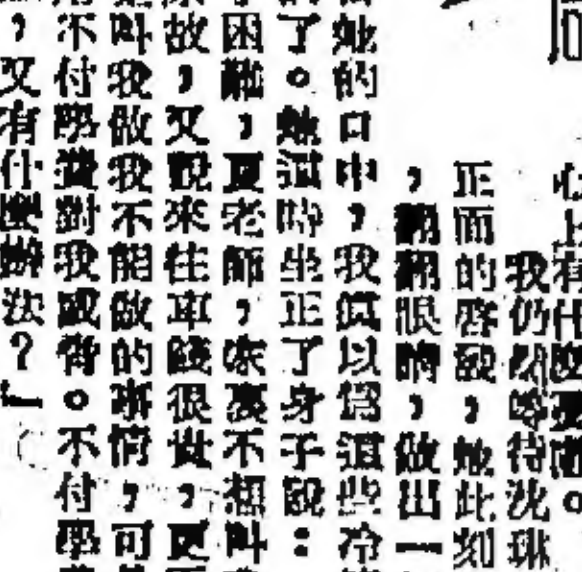 心上有什麼
我仍然等待沈琳
正面的啓發，她此刻
，翻翻眼睛，做出一
她的口中，我須以爲這些冷
了。她這時坐正了身子說：
困難，夏老師，家裏不想叫
故，又說來往車錢很貴，更
叫我做我不能做的事情，可
不付學費對我威脅。不付學
，又有什麼辦法？」